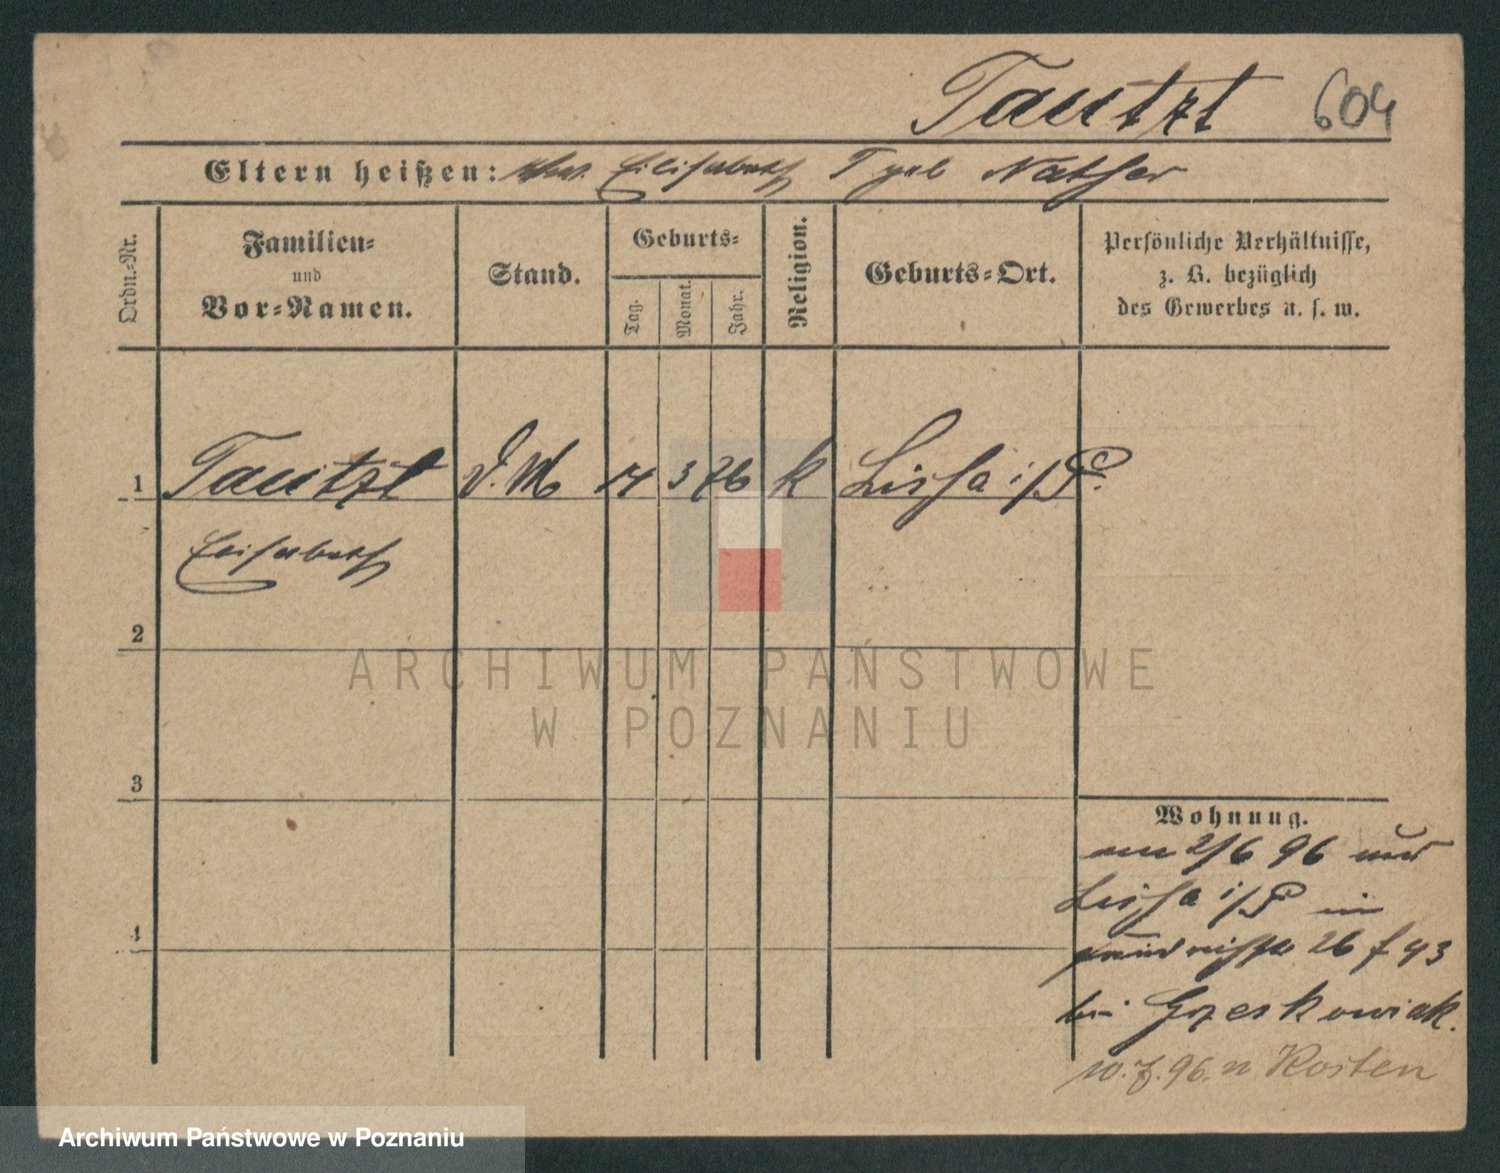 Tautzt 604
Eltern heißen: Elisabeth Nather
Ordn.-Nr.
Familien-
und
Vor-Namen.
Stand.
Geburts-
Tag.
Monat.
Jahr.
Religion.
Geburts-Ort.
Persönliche Verhältnisse,
z. B. bezüglich
des Gewerbes u. s. w.
1 Tautzt D. M 14 3 76 k Lissa i/P.
Elisabeth
2
3
4
Wohnung.
am 2/6 96 aus
Lissa i/P in
26 f 43
bei Grzeskowiak.
96. n Kosten
ARCHIWUM PAŃSTWOWE
W POZNANIU
Archiwum Państwowe w Poznaniu